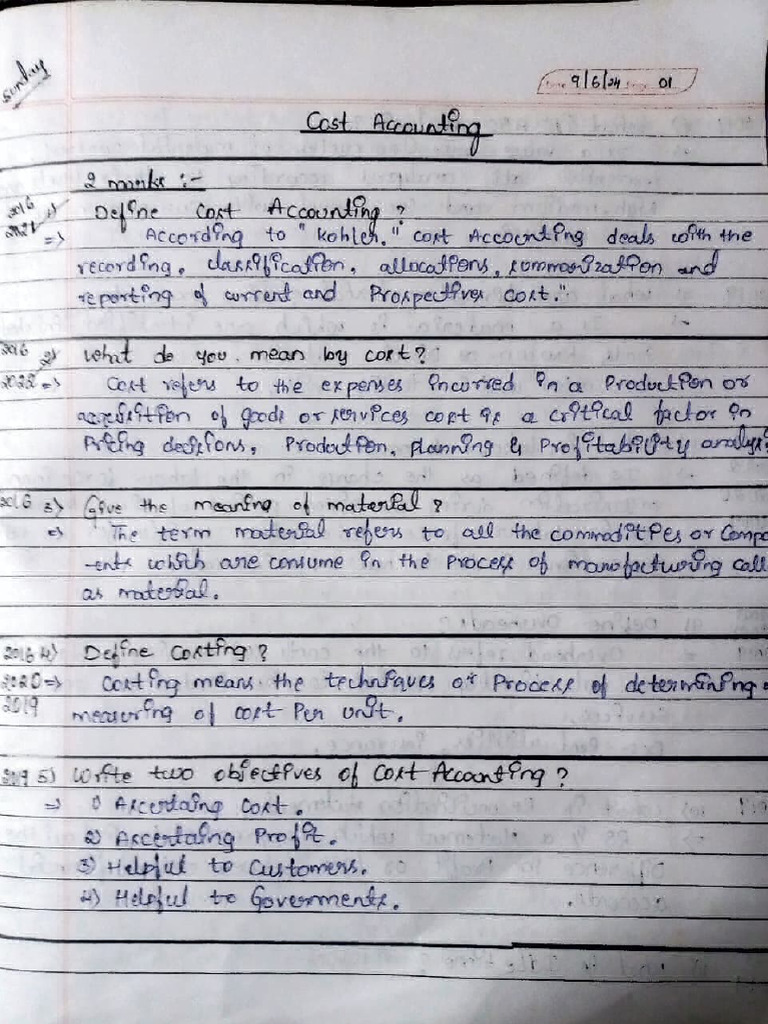 Sunday
9/6/24 01
Cost Accounting
2 marks :-
2016 1) Define Cost Accounting ?
=> According to "Kohler," cost Accounting deals with the
recording, classification, allocations, summarization and
reporting of current and Prospectives cost."
2016 2) what do you mean by cost?
2022 => Cost refers to the expenses incurred in a Production or
acquisition of goods or services cost is a critical factor in
Pricing decisions, Production, planning & Profitability analysis
2016 3) Give the meaning of material ?
=> The term material refers to all the commodities or Compo
-ents which are consume in the Process of manufacturing call
as material.
2016 4) Define Costing ?
2020 => Costing means the techniques or Process of determining
2019 measuring of cost Per unit.
2019 5) Write two objectives of Cost Accounting ?
=> 1) Ascertaing Cost.
2) Ascertaing Profit.
3) Helpful to Customers.
4) Helpful to Goverments.